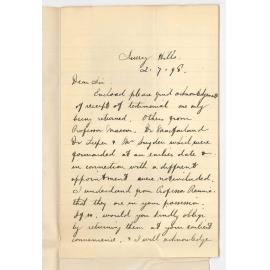 Surrey Hills.
2. 7. 98.
Dear Sir
Enclosed please find acknowledgment
of receipt of testimonial as only
being returned. Others from
Professor Masson. Dr Macfarland
Dr Leeper & Mr Snyder which were
forwarded at an earlier date &
in connection with a different
appointment were not included.
I understand from Professor Rennie
that they are in your possession.
If so, would you kindly oblige
by returning them at your earliest
convenience. & I will acknowledge